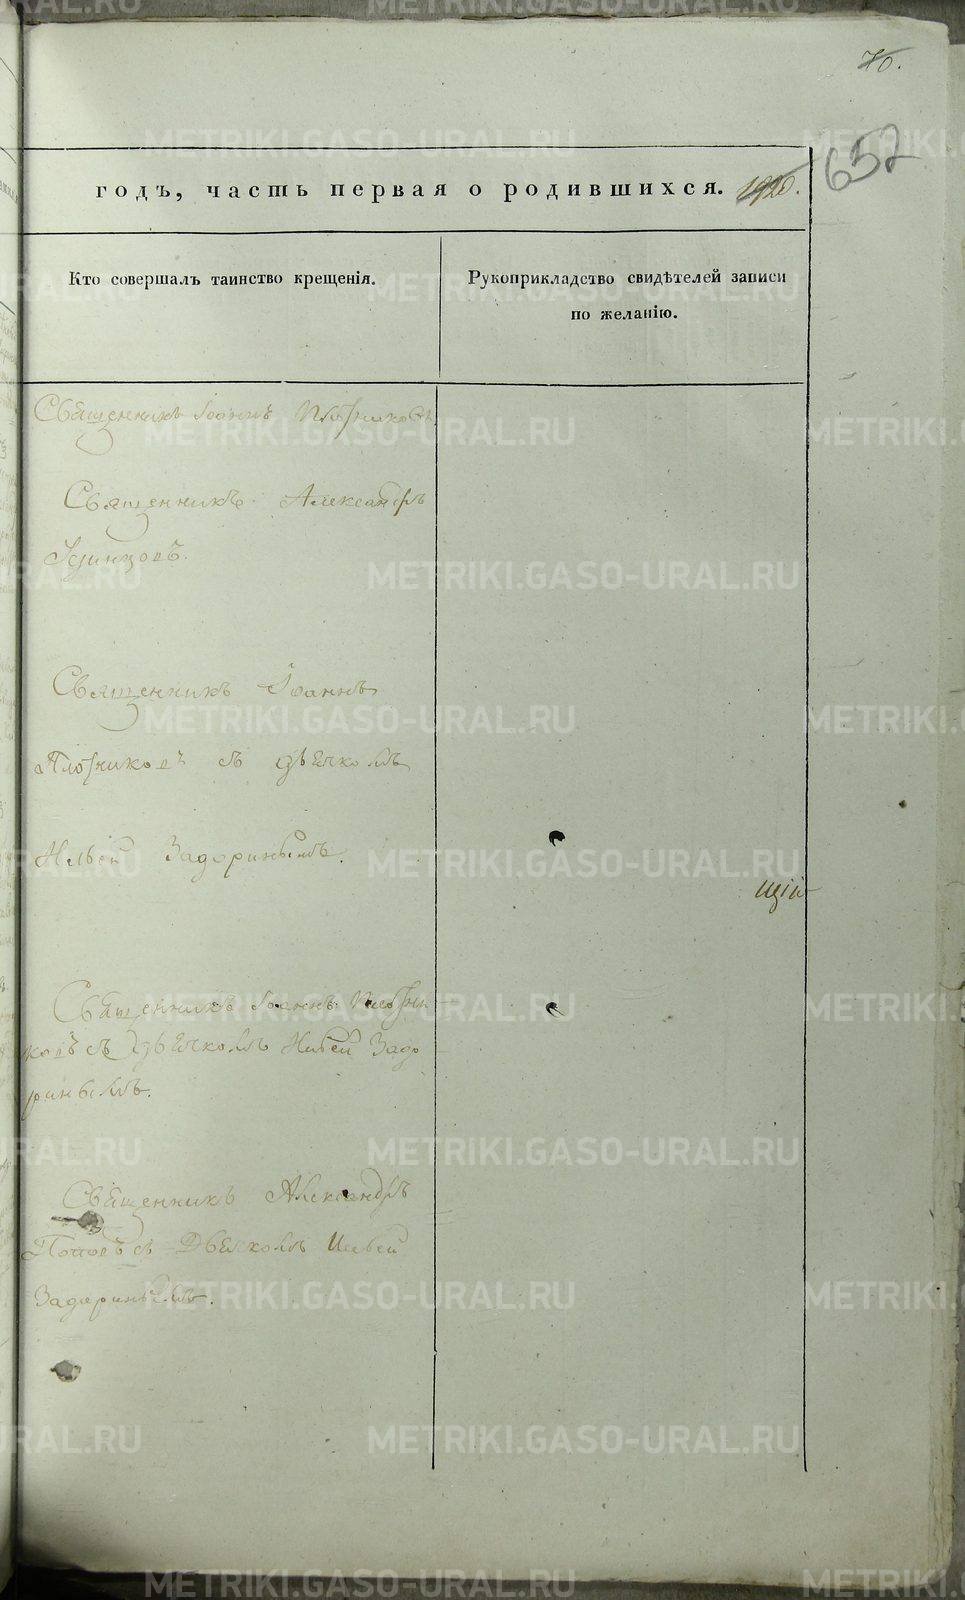 70.
652
годъ, часть первая о родившихся. 1920.
Кто совершалъ таинство крещенія.
Рукоприкладство свидѣтелей записи
по желанію.
Священникъ Іоаннъ Плотниковъ
Священникъ Александръ
Удинцовъ.
Священникъ Іоаннъ
Плотниковъ съ дьячкомъ
Ильей Задоринымъ.
щій
Священникъ Іоаннъ Плотни
ковъ съ дьячкомъ Ильей Задо
ринымъ.
Священникъ Александръ
Поповъ съ Дьячкомъ Ильей
Задоринымъ.
METRIKI.GASO-URAL.RU